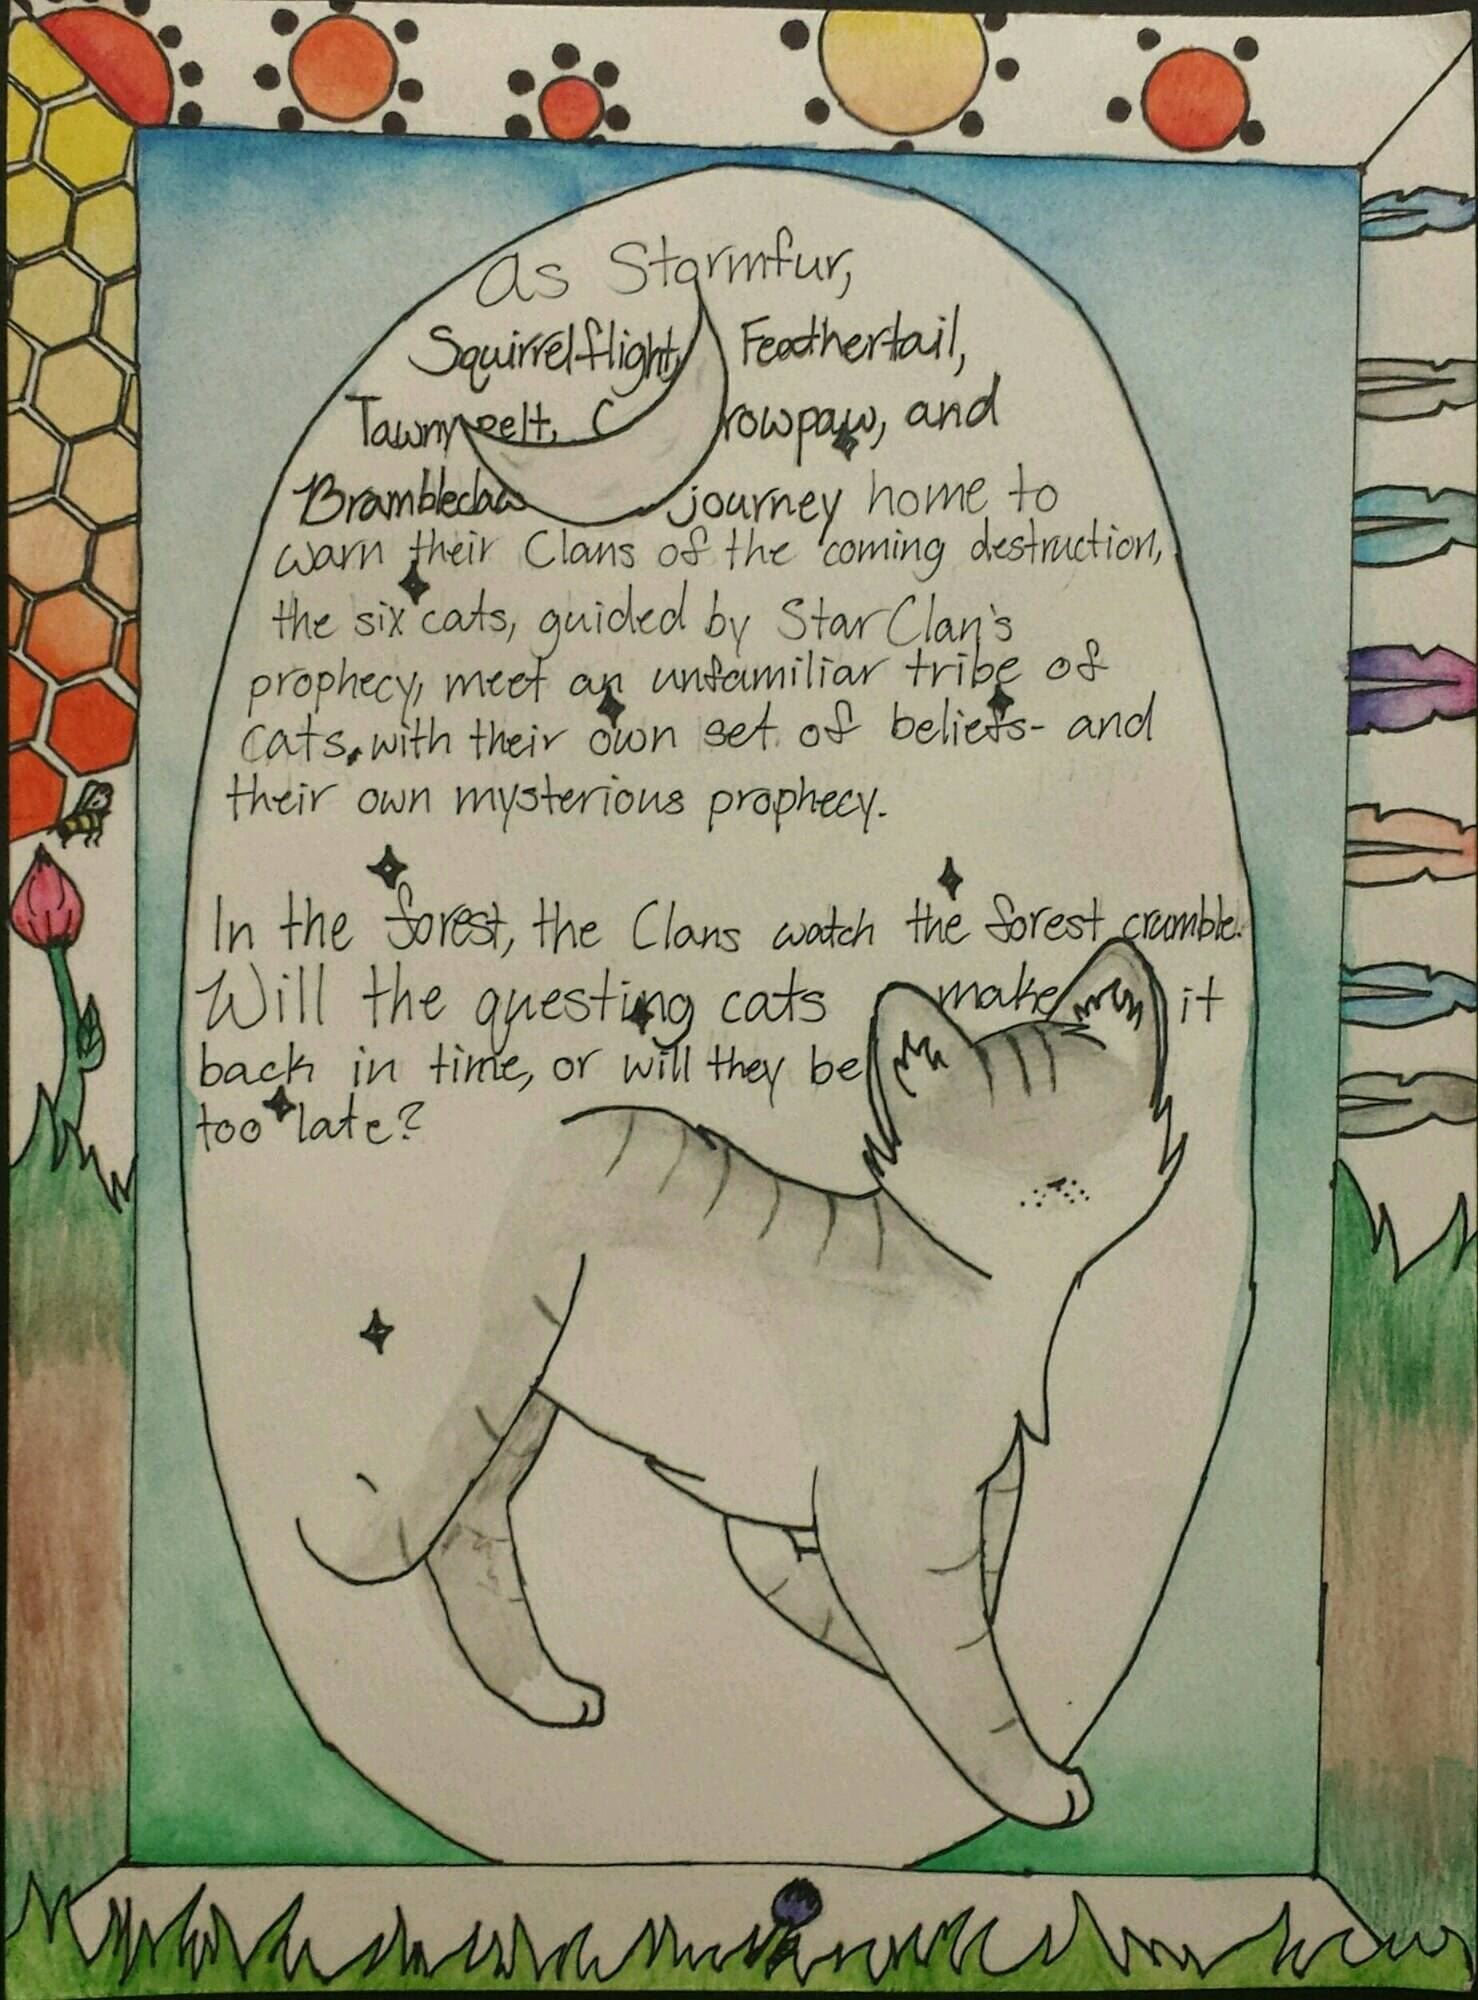 As Stormfur,
Squirrelflight, Feathertail,
Tawnypelt, Crowpaw, and
Brambleclaw journey home to
warn their Clans of the coming destruction,
the six cats, guided by StarClan's
prophecy, meet an unfamiliar tribe of
cats, with their own set of beliefs- and
their own mysterious prophecy.
In the forest, the Clans watch the forest crumble.
Will the questing cats make it
back in time, or will they be
too late?